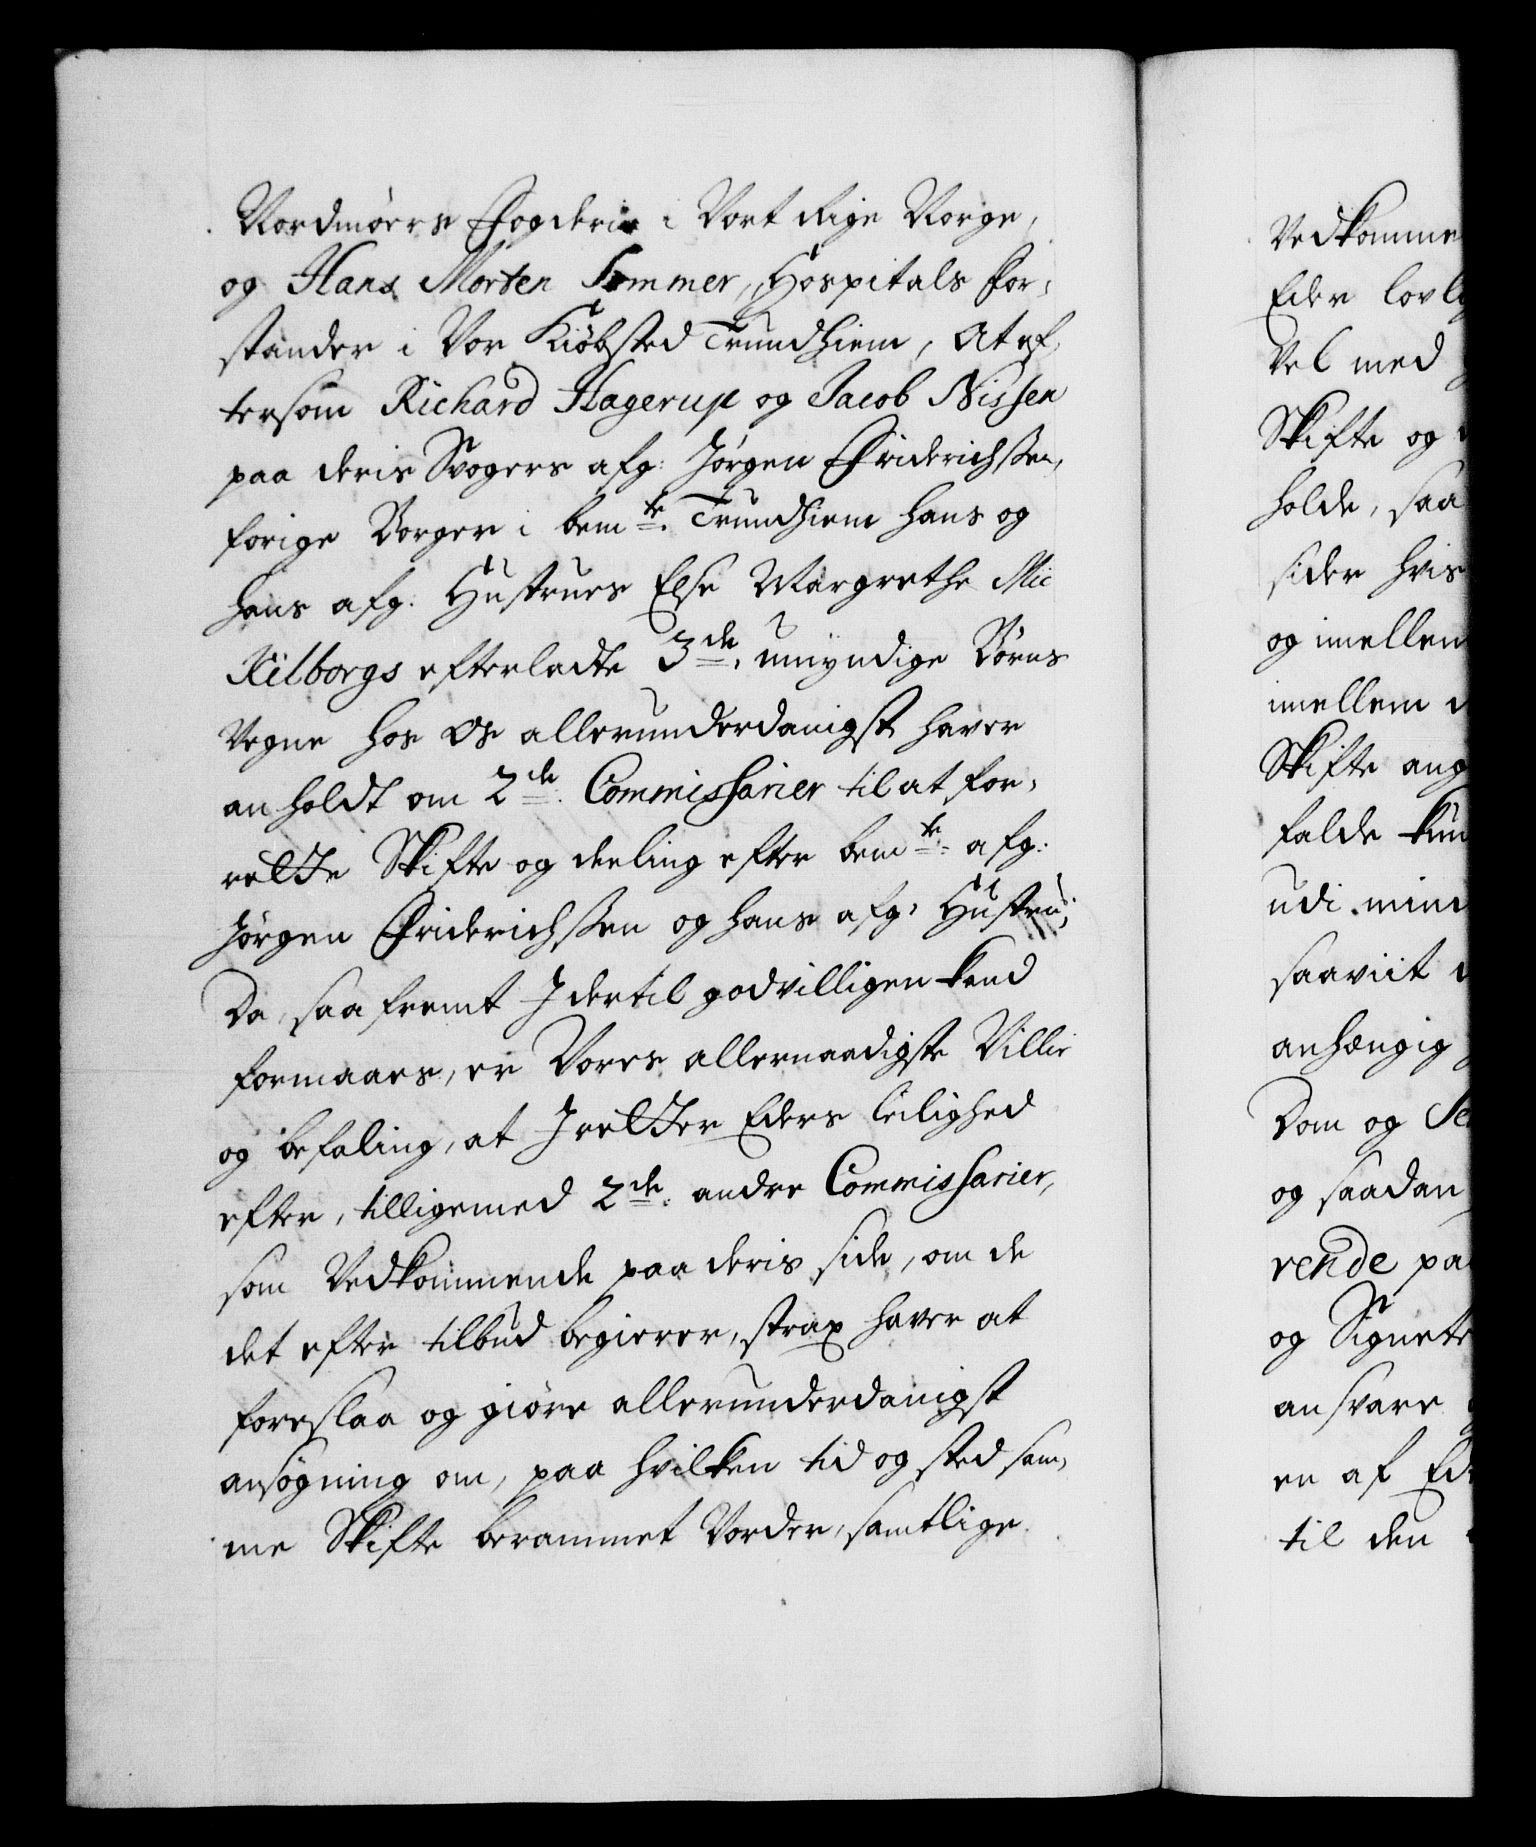 Nordmörs Fogderie i Vort Rige Norge,
og Hans Morten Sommer, Hospitals For-
stander i Vor Kiöbsted Trundhiem, At ef-
tersom Richard Hagerup og Jacob Nissen
paa deris Svogers afg: Jörgen Friderichssen,
forige Borger i bemte. Trundhiem hans og
hans afg: Hustrues Else Margrethe Mic
Kilborgs efterladte 3de. umyndige Börns
Vegne hos os allerunderdanigst haver
anholdt om 2de. Commissarier til at for-
rette Skifte og deeling efter bemte. afg:
Jörgen Friderichssen og hans afg: Hustru;
Da, saafremt I dertil godvilligen kand
formaaes, er Vores allernaadigste Villie
og befaling, at I retter Eders leilighed
efter, tilligemed 2de. andre Commissarier,
som Vedkommende paa deris side, om de
det efter tilbud begierer, strax haver at
foreslaa og giöre allerunderdanigst
ansögning om, paa hvilken tid og sted sam-
me Skifte berammet Vorder, samtlige
Vedkomme
Eder lovl
Vel med
Skifte og
holde, saa
sider hvis
og imellem
imellem
Skifte ang
falde kun
udi mind
saaviit
anhængig
Dom og Se
og saadan
rende paa
og Signete
ansvare
en af Ed
til den